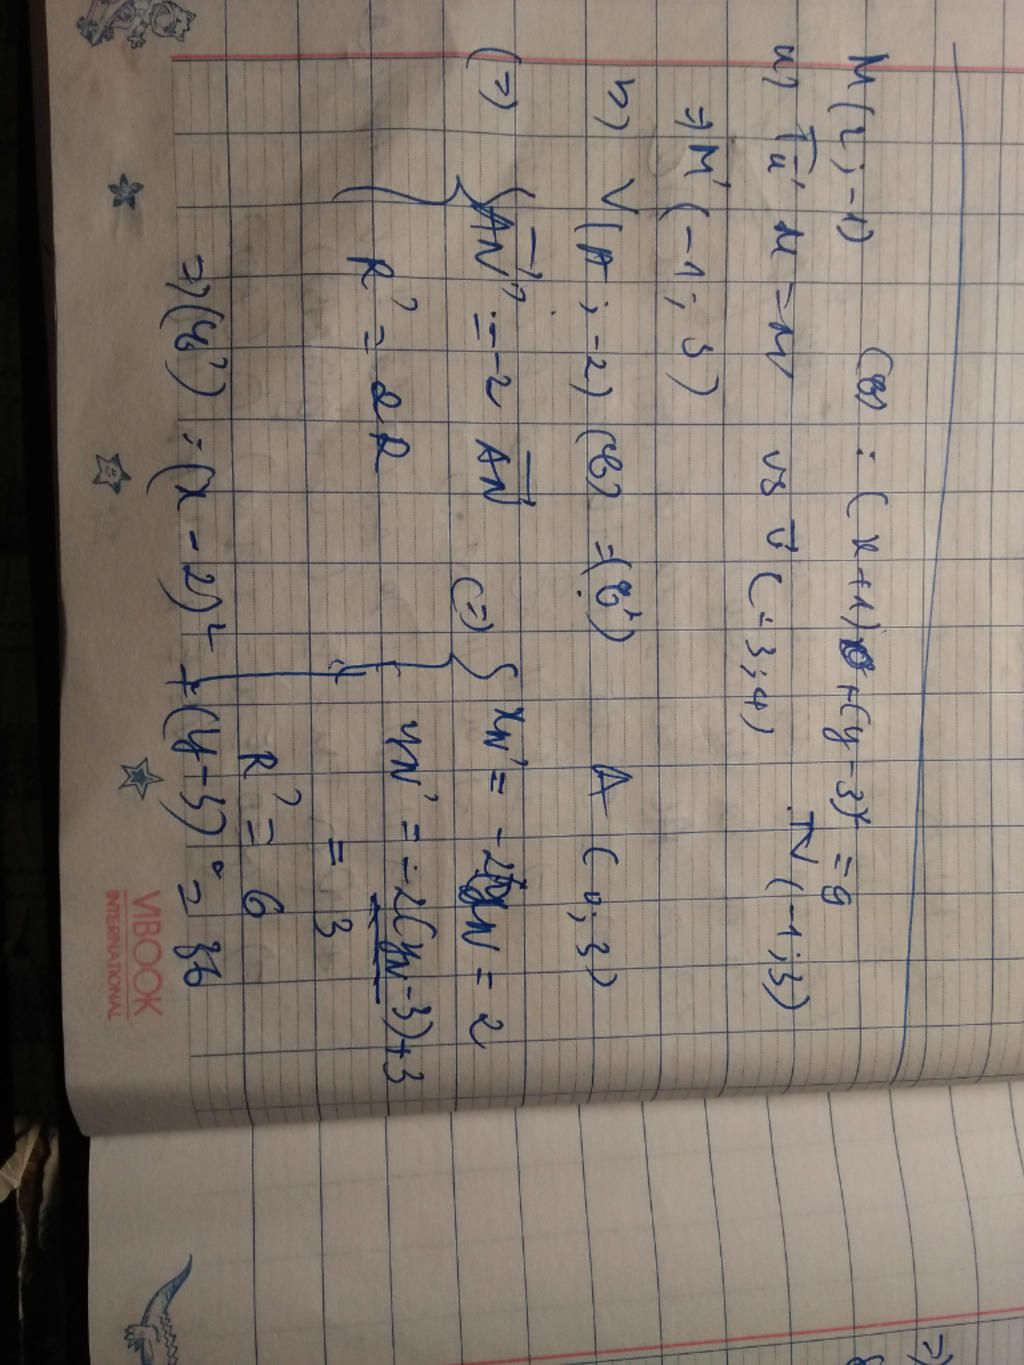 M(2;-1) (C) : (x+1)² + (y-3)² = 9
a) Tu' M = M' vs v (-3;4) N (-1;3)
⇒ M' (-1;3)
b) V (A;-2) (C) = (C') A (0;3)
(=) { AN' = -2 AN (=) { xN' = -2xN = 2
R' = 2R yN' = -2(yN-3)+3
= 3
R' = 6
=> (C') : (x-2)² + (y-3)² = 36
VIBOOK
INTERNATIONAL
=)